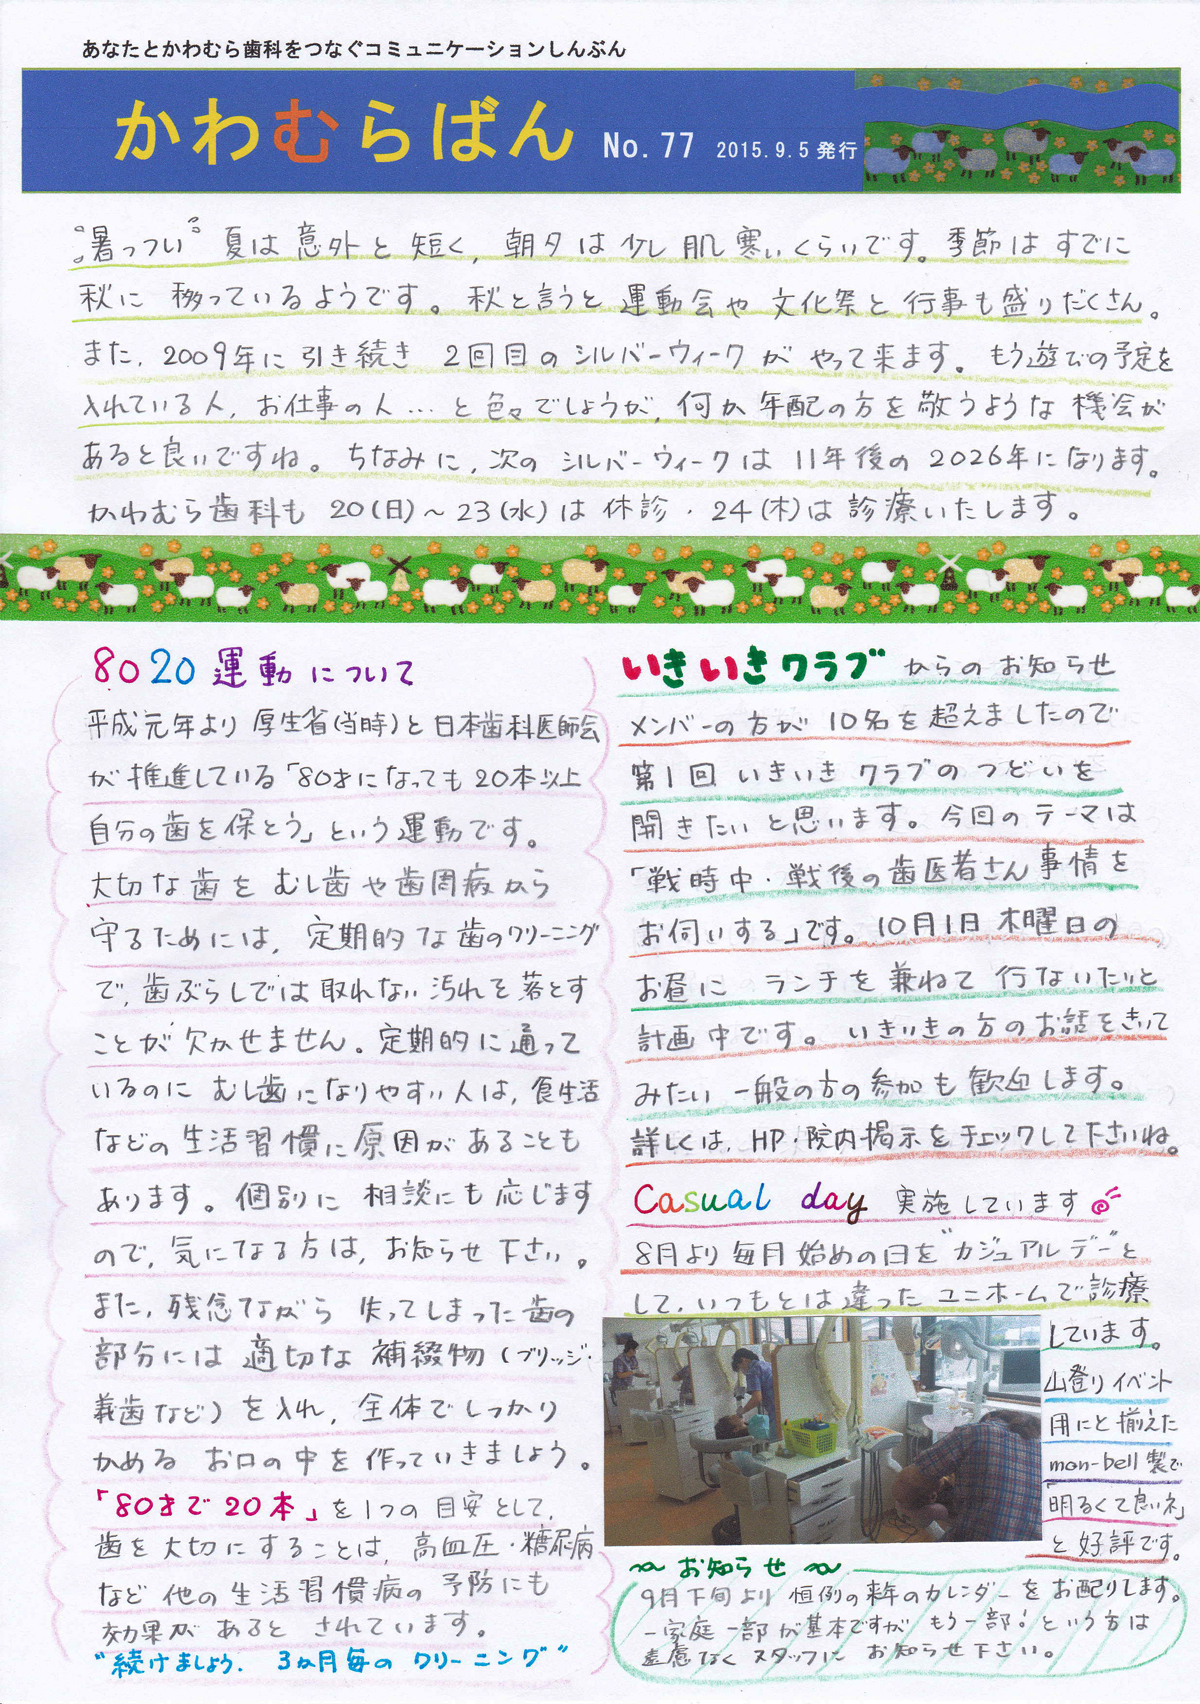 あなたとかわむら歯科をつなぐコミュニケーションしんぶん
かわむらばん No.77 2015.9.5発行
"暑っつい" 夏は意外と短く、朝夕は少し肌寒いくらいです。季節はすでに
秋に移っているようです。秋と言うと運動会や文化祭と行事も盛りだくさん。
また、2009年に引き続き 2回目のシルバーウィークがやって来ます。もう遊びの予定を
入れている人、お仕事の人…と色々でしょうが、何か年配の方を敬うような機会が
あると良いですね。ちなみに、次のシルバーウィークは11年後の2026年になります。
かわむら歯科も 20(日)～23(水)は休診・24(木)は診療いたします。
8020運動について
平成元年より厚生省(当時)と日本歯科医師会
が推進している「80才になっても20本以上
自分の歯を保とう」という運動です。
大切な歯をむし歯や歯周病から
守るためには、定期的な歯のクリーニング
で、歯ぶらしでは取れない汚れを落とす
ことが欠かせません。定期的に通って
いるのにむし歯になりやすい人は、食生活
などの生活習慣に原因があることも
あります。個別に相談にも応じます
ので、気になる方は、お知らせ下さい。
また、残念ながら失ってしまった歯の
部分には適切な補綴物(ブリッジ・
義歯など)を入れ、全体でしっかり
かめるお口の中を作っていきましょう。
「80才で20本」を1つの目安として、
歯を大切にすることは、高血圧・糖尿病
など他の生活習慣病の予防にも
効果があるとされています。
"続けましょう、3ヵ月毎のクリーニング"
いきいきクラブからのお知らせ
メンバーの方が10名を超えましたので
第1回いきいきクラブのつどいを
開きたいと思います。今回のテーマは
「戦時中・戦後の歯医者さん事情を
お伺いする」です。10月1日木曜日の
お昼にランチを兼ねて行ないたいと
計画中です。いきいきの方のお話をきいて
みたい一般の方の参加も歓迎します。
詳しくは、HP・院内掲示をチェックして下さいね。
Casual day 実施しています
8月より毎月始めの日を"カジュアルデー"と
して、いつもとは違ったユニホームで診療
しています。
山登りイベント
用にと揃えた
mon-bell製で
「明るくて良いネ」
と好評です。
～お知らせ～
9月下旬より恒例の来年のカレンダーをお配りします。
一家庭一部が基本ですがもう一部！という方は
遠慮なくスタッフにお知らせ下さい。